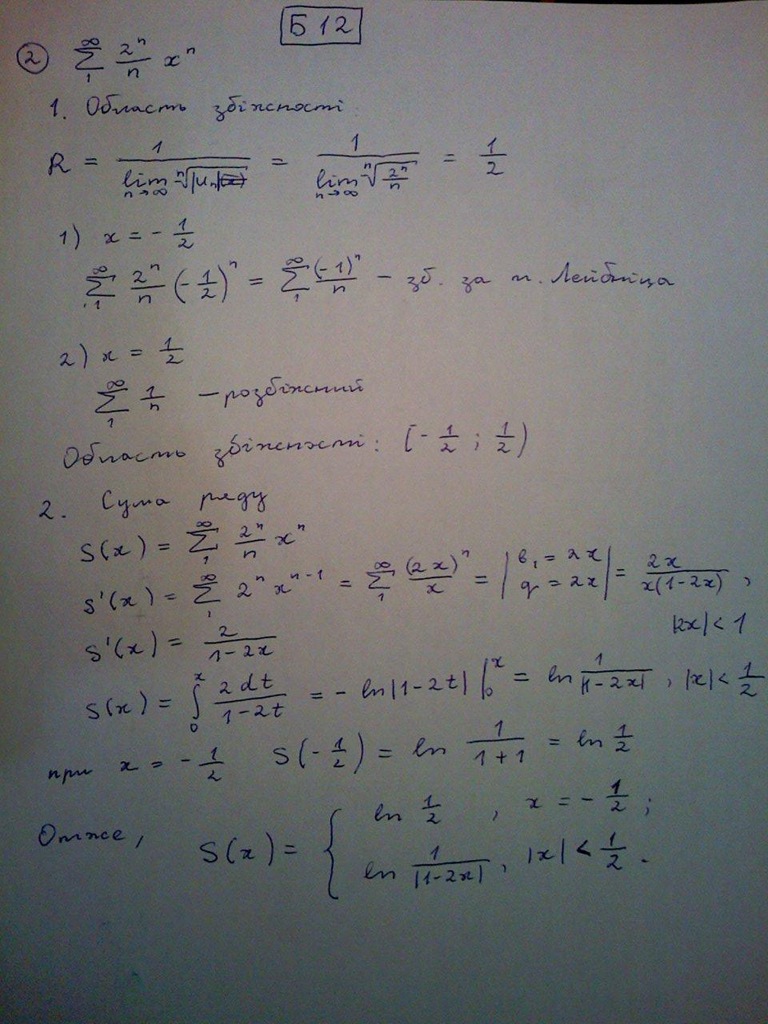 Б 12
② ∑₁^∞ 2ⁿ/n xⁿ
1. Область збіжності
R = 1/(lim_{n→∞} ⁿ√|Uₙ|) = 1/(lim_{n→∞} ⁿ√(2ⁿ/n)) = 1/2
1) x = - 1/2
∑₁^∞ 2ⁿ/n (-1/2)ⁿ = ∑₁^∞ (-1)ⁿ/n - зб. за т. Лейбніца
2) x = 1/2
∑₁^∞ 1/n - розбіжний
Область збіжності: [-1/2 ; 1/2)
2. Сума ряду
S(x) = ∑₁^∞ 2ⁿ/n xⁿ
S'(x) = ∑₁^∞ 2ⁿ xⁿ⁻¹ = ∑₁^∞ (2x)ⁿ/x = | b₁ = 2x q = 2x | = 2x/(x(1-2x)) ,
|2x| < 1
S'(x) = 2/(1-2x)
S(x) = ∫₀ˣ 2dt/(1-2t) = - ln|1-2t| |₀ˣ = ln 1/|1-2x| , |x| < 1/2
при x = - 1/2 S(-1/2) = ln 1/(1+1) = ln 1/2
Отже, S(x) = { ln 1/2 , x = - 1/2 ;
ln 1/|1-2x| , |x| < 1/2 .